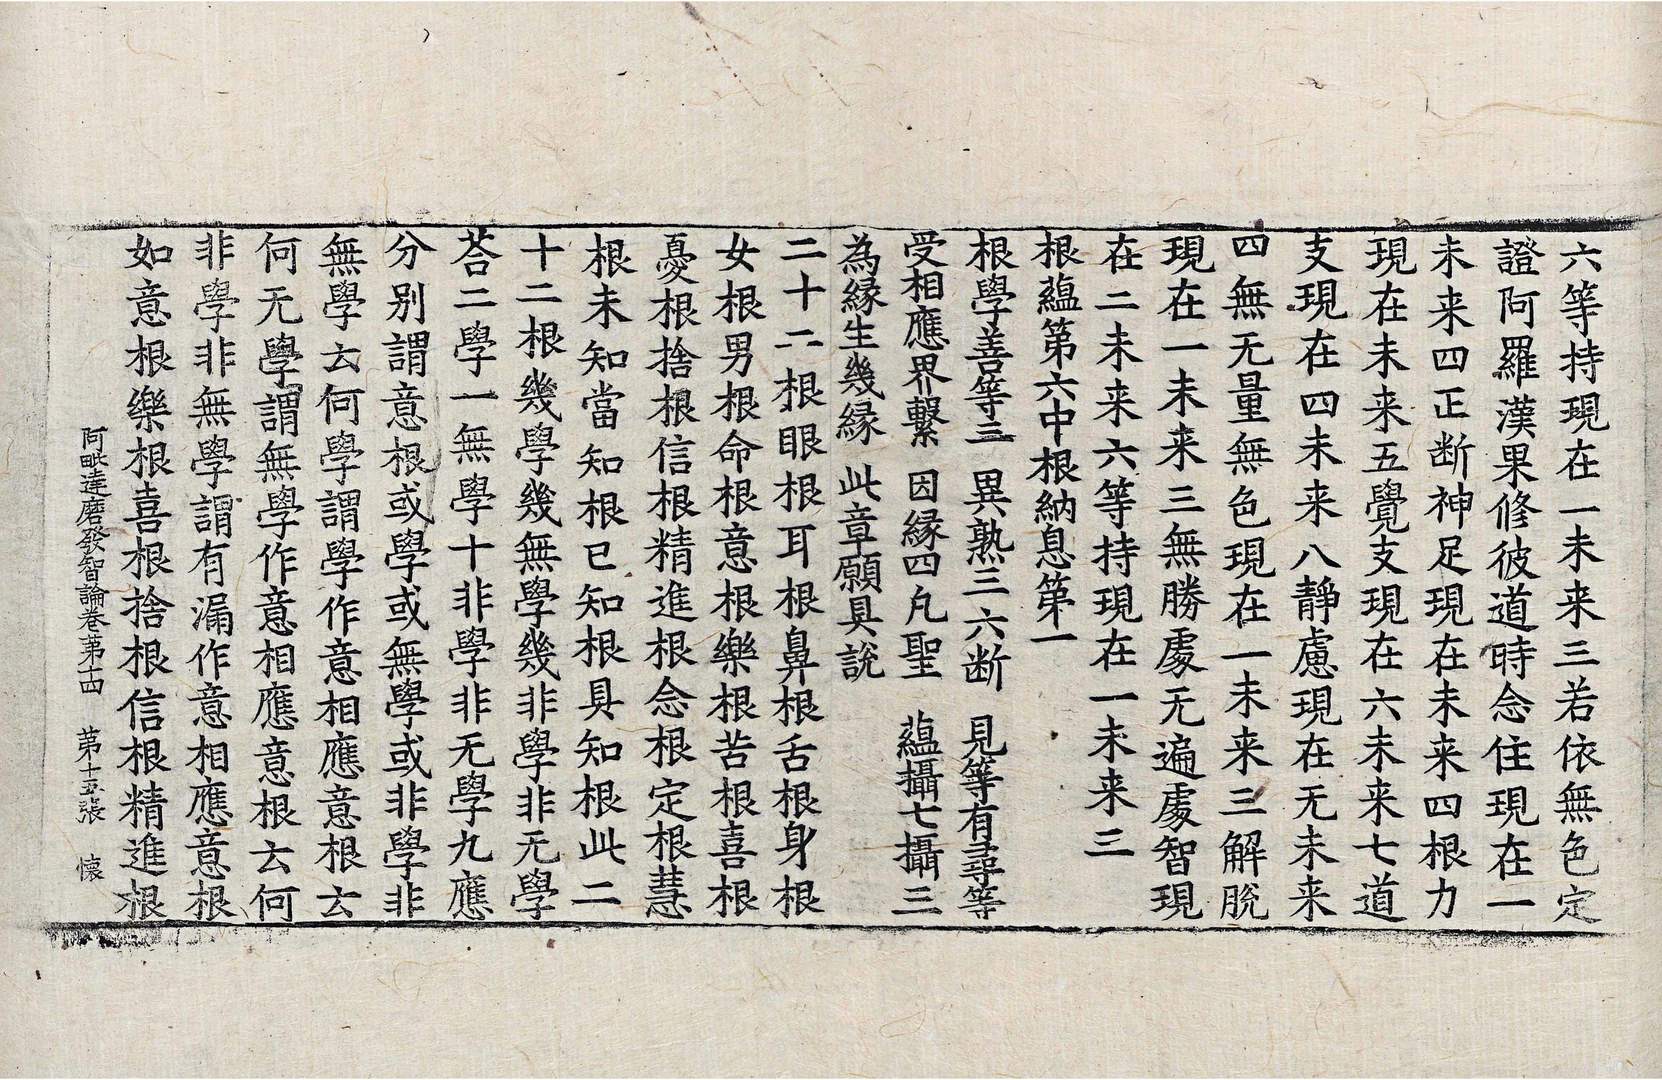 六等持現在一未来三若依無色定
證阿羅漢果修彼道時念住現在一
未来四正断神足現在未来四根力
現在未来五覺支現在六未来七道
支現在四未来八靜慮現在无未来
四無无量無色現在一未来三解脫
現在一未来三無勝處无遍處智現
在二未来六等持現在一未来三
根蘊第六中根納息第一
根學善等三　異熟三六断　見等有尋等
受相應界繫　因緣四凡聖　蘊攝七攝三
為緣生幾緣　此章願具說
二十二根眼根耳根鼻根舌根身根
女根男根命根意根樂根苦根喜根
憂根捨根信根精進根念根定根慧
根未知當知根已知根具知根此二
十二根幾學幾無學幾非學非无學
荅二學一無學十非學非无學九應
分別謂意根或學或無學或非學非
無學云何學謂學作意相應意根云
何无學謂無學作意相應意根云何
非學非無學謂有漏作意相應意根
如意根樂根喜根捨根信根精進根
阿毗達磨發智論卷苐十四　苐十五張　懷